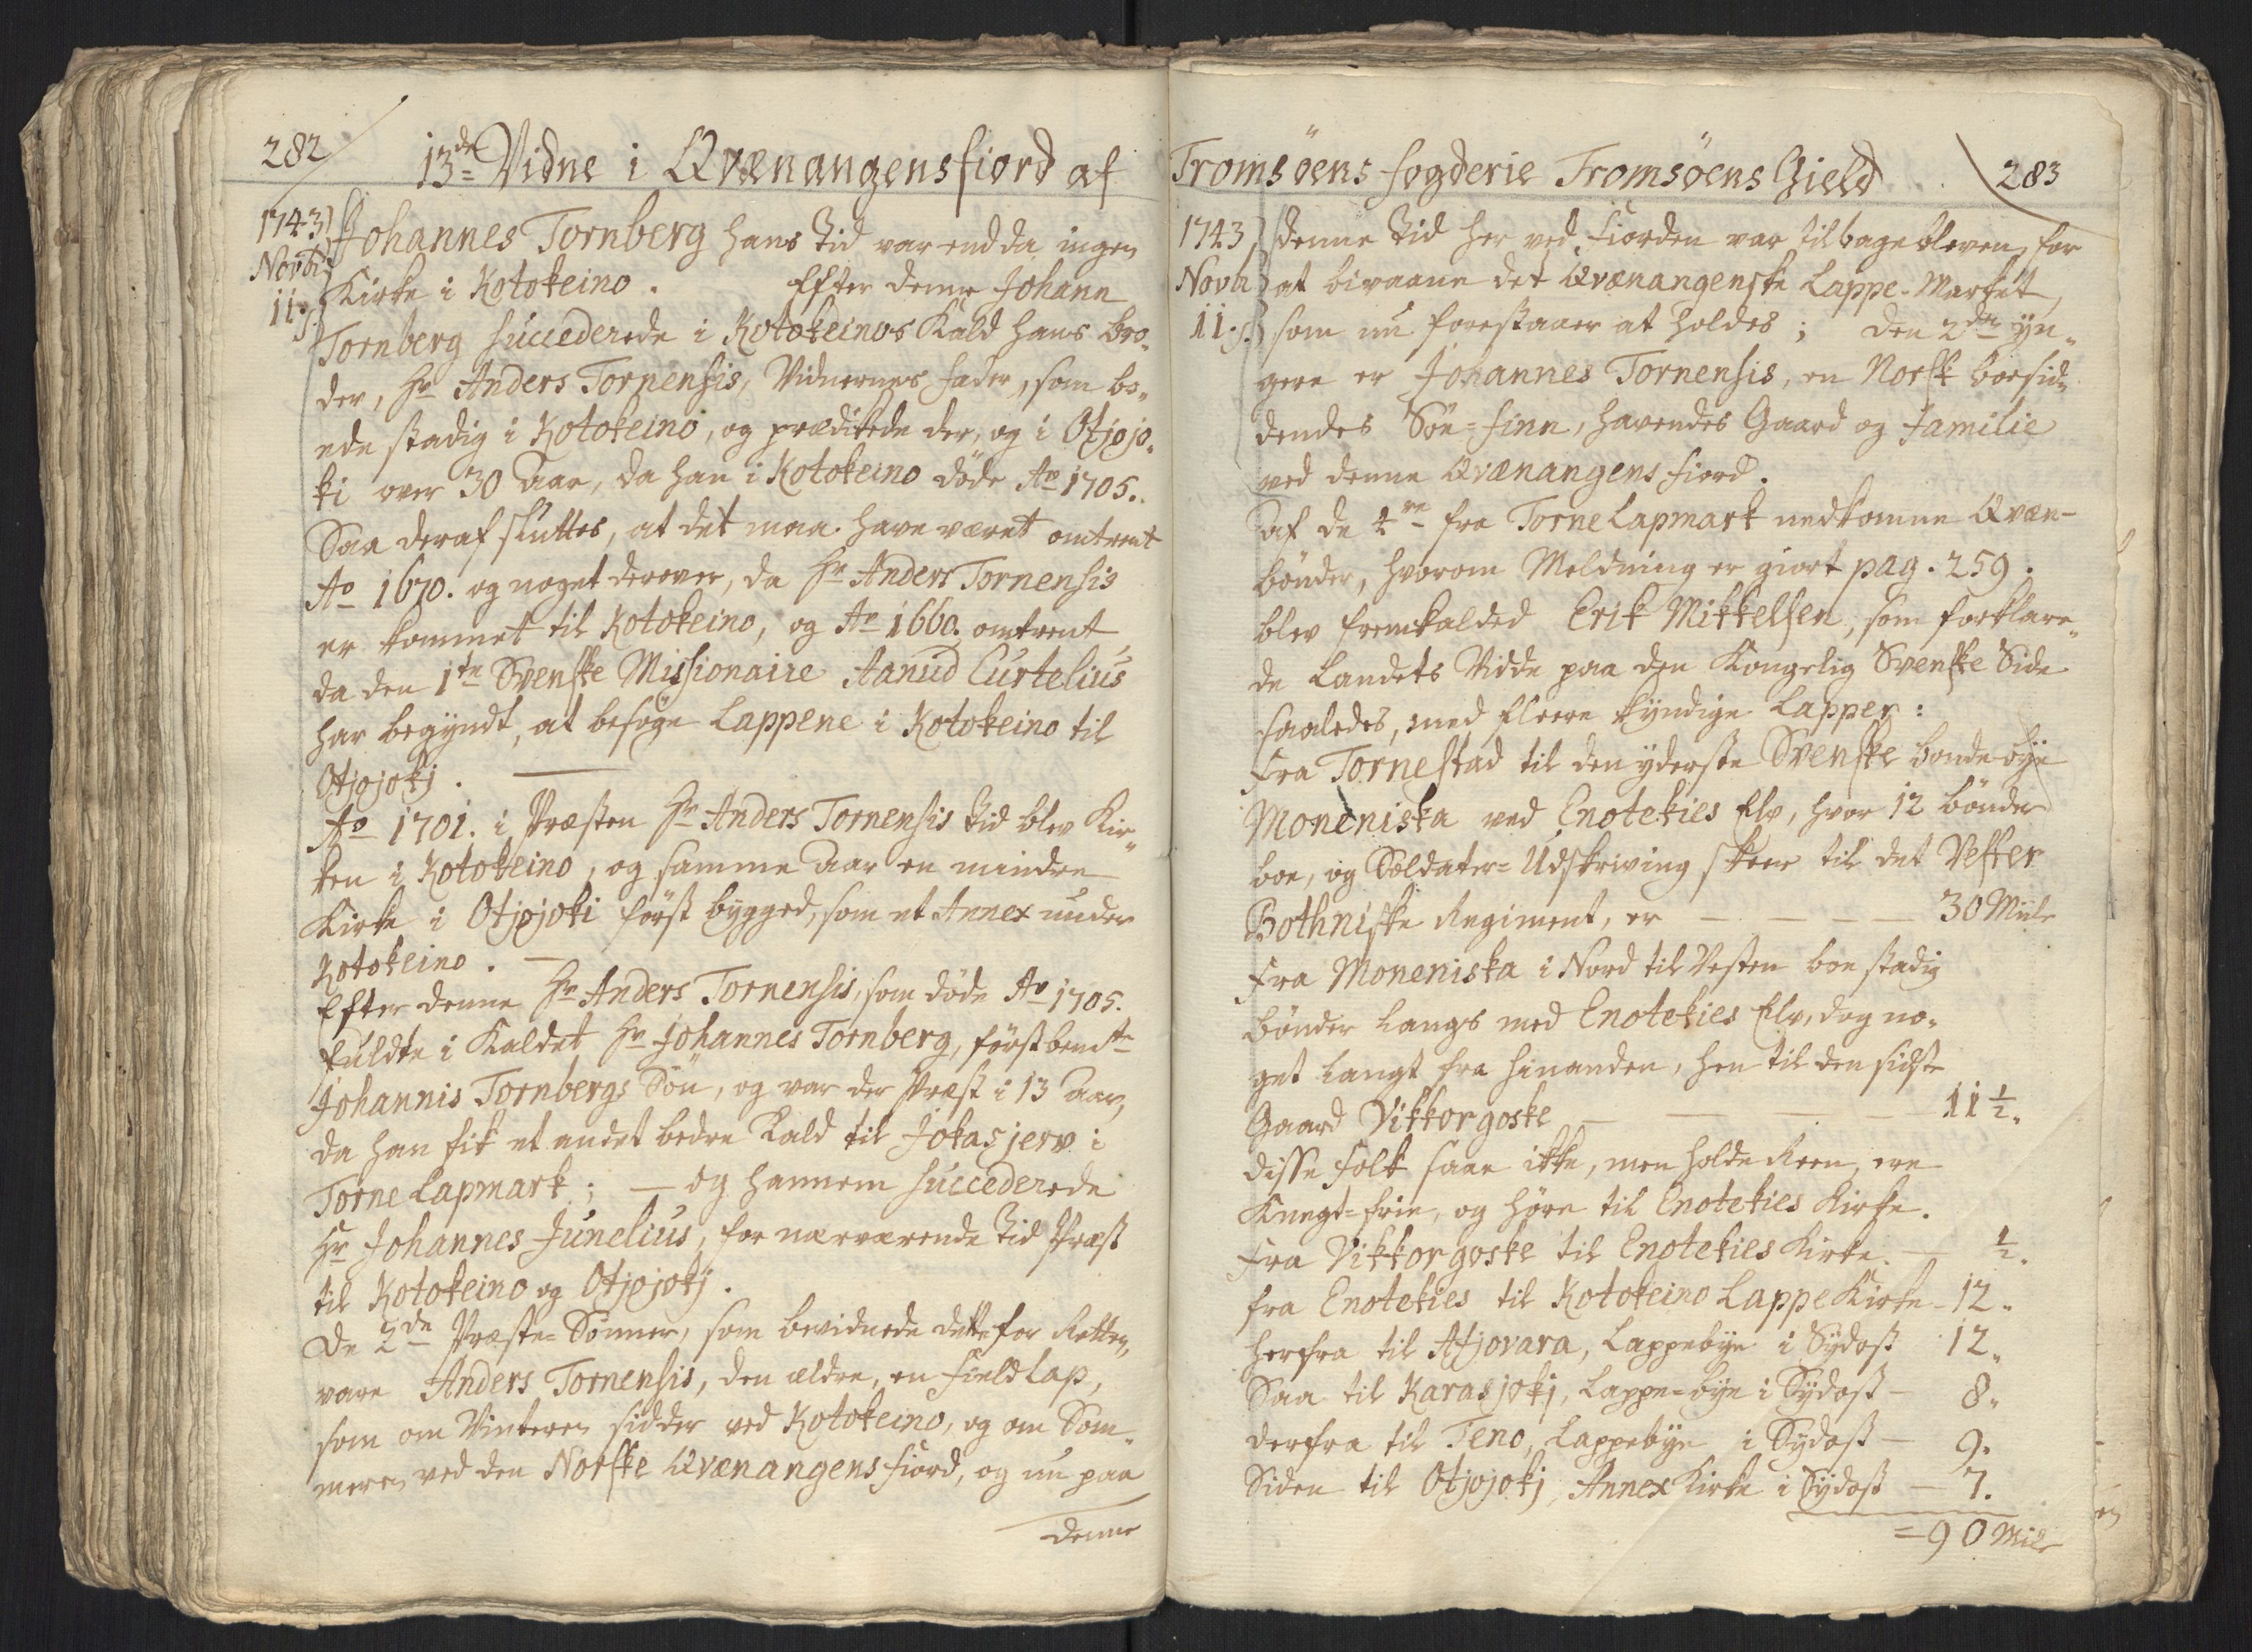 282
13de Vidne i Qvænangensfiord af
1743
Novbr
11.
Johannes Tornberg hans Tid var endda ingen
Kirke i Kotokeino. Efter denne Johann
Tornberg succederede i Kotokeinos Kald hans bro-
der, Hr Anders Tornensis, Vidnernes fader, som bo-
ede stadig i Kotokeino, og prædikede der, og i Otjojo-
ki over 30 Aar, da han i Kotokeino döde Ao 1705.
Saa deraf sluttes, at det maa have været omtrent
Ao 1670. og noget derover, da Hr Anders Tornensis
er kommet til Kotokeino, og Ao 1660. omtrent,
da den 1te Svenske Missionaire Aanud Curtelius
har begyndt, at besöge Lappene i Kotokeino til
Otjojokj. —
Ao 1701. i Præsten Hr Anders Tornensis Tid blev Kir-
ken i Kotokeino, og samme Aar en mindre
Kirke i Otjojoki först bygged, som et Annex under
Kotokeino. —
Efter denne Hr Anders Tornensis, som döde Ao 1705.
fuldte i Kaldet Hr Johannes Tornberg, förstbemte
Johannis Tornbergs Sön, og var der Præst i 13 Aar,
da han fik et andet bedre Kald til Jokasjerv i
Torne Lapmark; — og hannem succederede
Hr Johannes Junelius, for nærværende Tid Præst
til Kotokeino og Otjojokj.
De 2de Præste-Sönner, som bevidnede dette for Retten,
vare Anders Tornensis, den ældre, en fieldlap,
som om Vinteren sidder ved Kotokeino, og om Som-
meren ved den Norske Qvænangensfiord, og nu paa
denne
Tromsöens fogderie Tromsöens Gield
283
1743
Novbr
11.
denne Tid her ved Fiorden var tilbagebleven, for
at bivaane det Qvænangenske Lappe-Market,
som nu forestaaer at holdes; den 2den yn-
gere er Johannes Tornensis, en Norsk boesid-
dendes Söe-finn, havendes Gaard og Familie
ved denne Qvænangens fiord.
af de 4re fra Torne Lapmark nedkomne Qvæn-
bönder, hvorom Meldning er giort pag. 259.
blev fremkalded Erik Mikkelsen, som forklare-
de Landets Vidde paa den Kongelig Svenske Side
saaledes, med fleere kyndige Lapper:
Fra Tornestad til den yderste Svenske bondebye
Moneniska ved Enotekies Elv, hvor 12 bönder
boe, og Soldater-Udskriving skeer til det Vester
Bothniske Regiment, er — — — — 30 Miile
Fra Moneniska i Nord til Vesten boe stadig
bönder langs med Enotekies Elv, dog no-
get langt fra hinanden, hen til den sidste
Gaard Vikkorgoske — — — 11 1/2.
disse folk saae ikke, men holde Reen, ere
Knegt-frie, og höre til Enotekies Kirke.
Fra Vikkorgoske til Enotekies Kirke — 1/2.
fra Enotekies til Kotokeino Lappe Kirke — 12.
herfra til Afjovara, Lappebye i Sydost 12.
Saa til Karasjokj, Lappe-bye i Sydost — 8.
derfra til Teno, Lappebye i Sydost — 9.
Siden til Otjojokj, Annex Kirke i Sydost — 7.
= 90 Mile